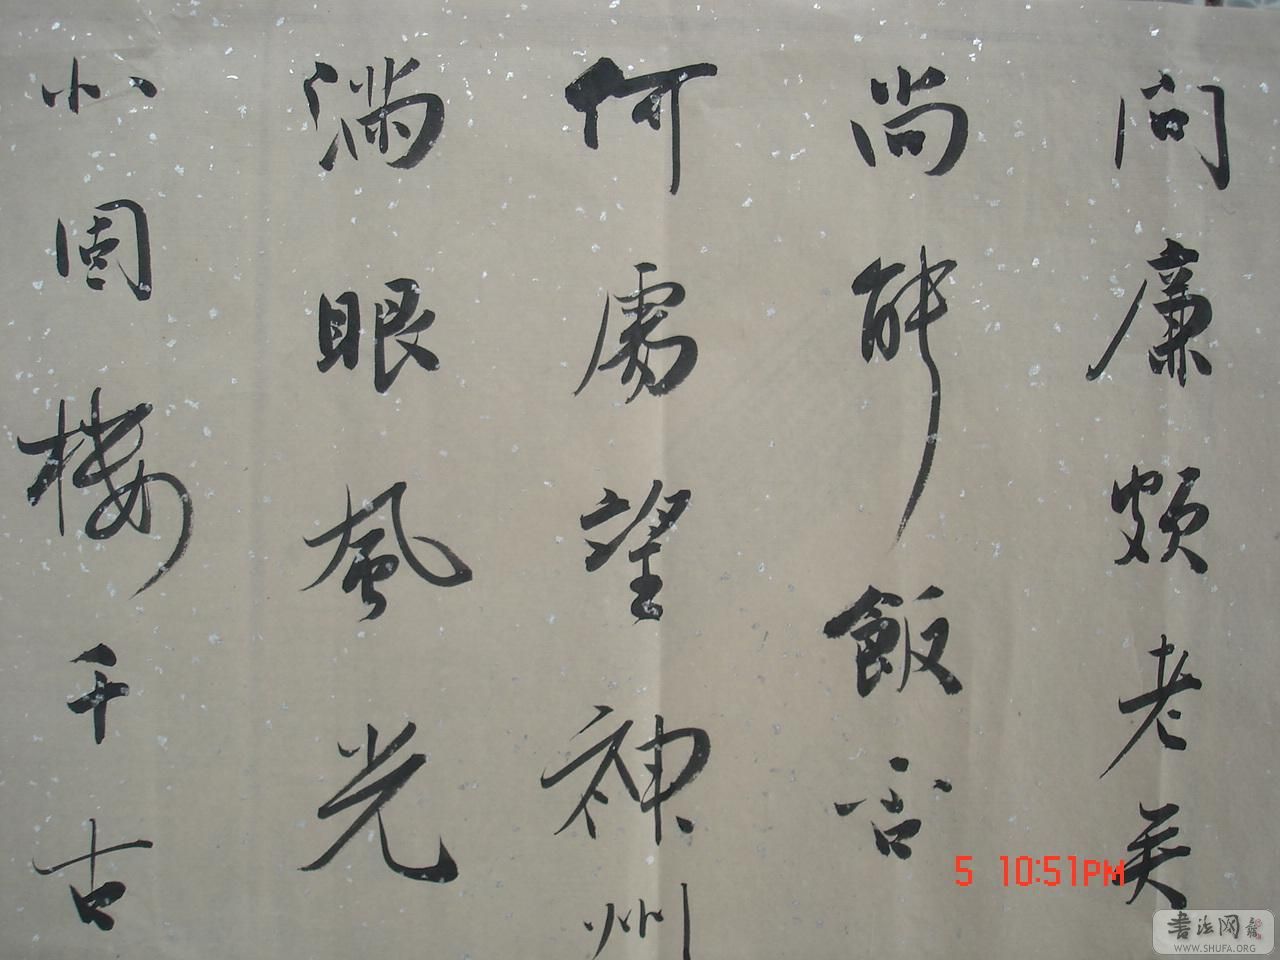 問廉頗老矣
尚能飯否
何處望神州
滿眼風光
北固樓千古
5 10:51PM
書法网
WWW.SHUFA.ORG